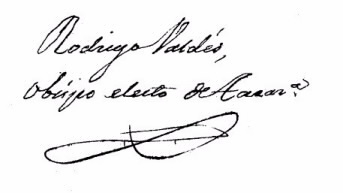 Rodrigo Valdés,
obispo electo de